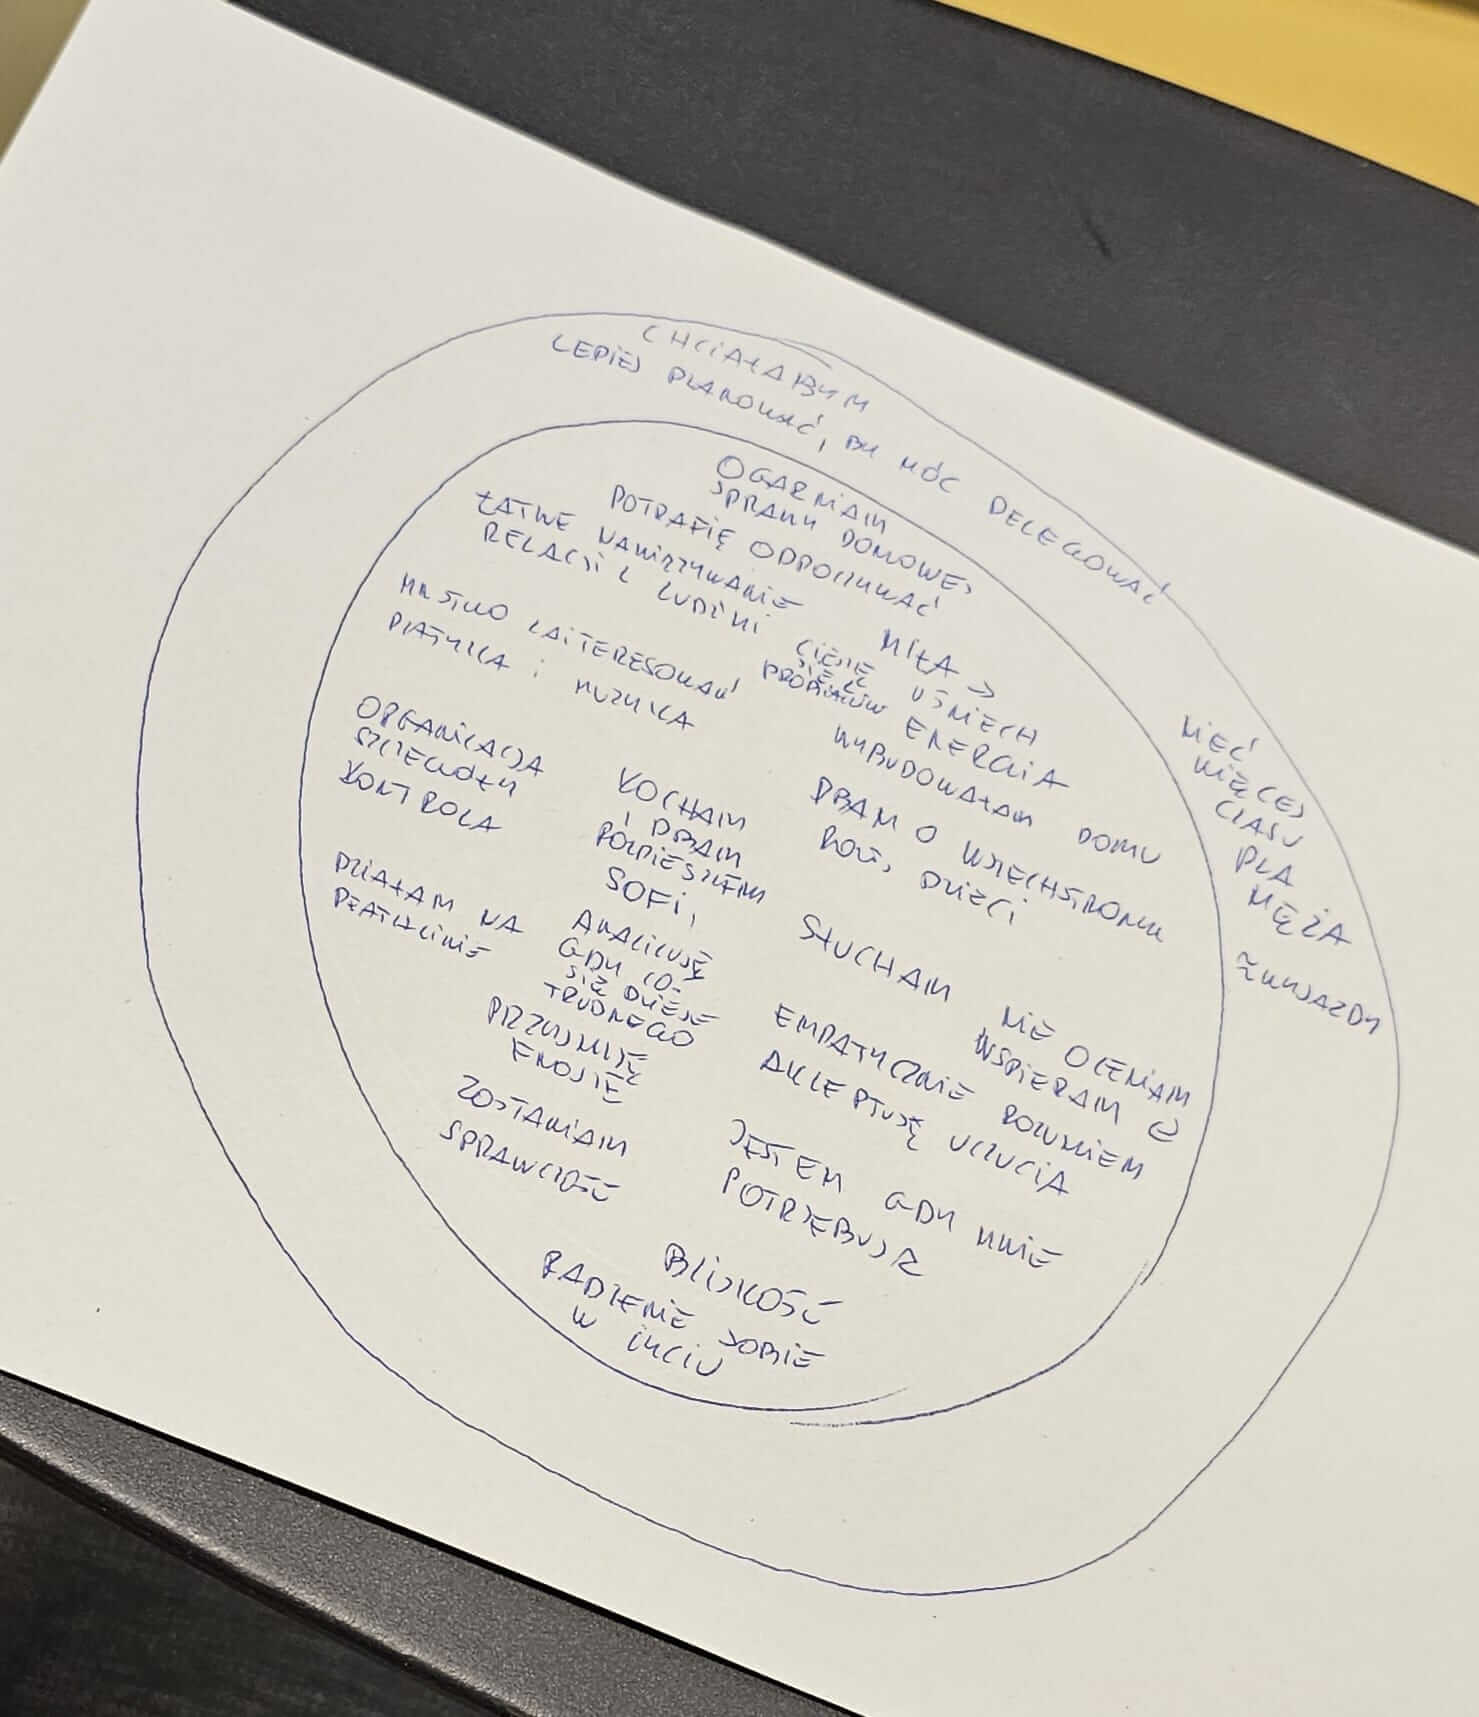 CHCIAŁABYM
LEPIEJ PLANOWAĆ, BY MÓC DELEGOWAĆ
MIEĆ
WIĘCEJ
CZASU
DLA
MĘŻA
WYJAZDY
OGARNIAM
SPRAWY DOMOWE,
POTRAFIĘ ODPOCZYWAĆ
ŁATWE NAWIĄZYWANIE
RELACJI Z LUDŹMI
MNÓSTWO ZAITERESOWAŃ
PLASTYKA i MUZYKA
MIŁA →
UŚMIECH
ENERGIA
CIESZĘ
SIĘ Z
WYBUDOWAŁAM DOMU
ORGANIZACJA
SZCZEGÓŁY
KONTROLA
KOCHAM
I DBAM
SOFI,
DBAM O WSZECHSTRONNY
ROZ, DZIECI
DZIAŁAM NA
ANALIZUJĘ
GDY COŚ
SIĘ DZIEJE
TRUDNEGO
SŁUCHAM NIE OCENIAM
WSPIERAM
EMPATYCZNIE ROZUMIEM
AKCEPTUJĘ UCZUCIA
PRZYJMUJĘ
EMOCJE
ZOSTAWIAM
SPRAWCZOŚĆ
JESTEM GDY MNIE
POTRZEBUJĄ
BLISKOŚĆ
RADZENIE SOBIE
W ŻYCIU